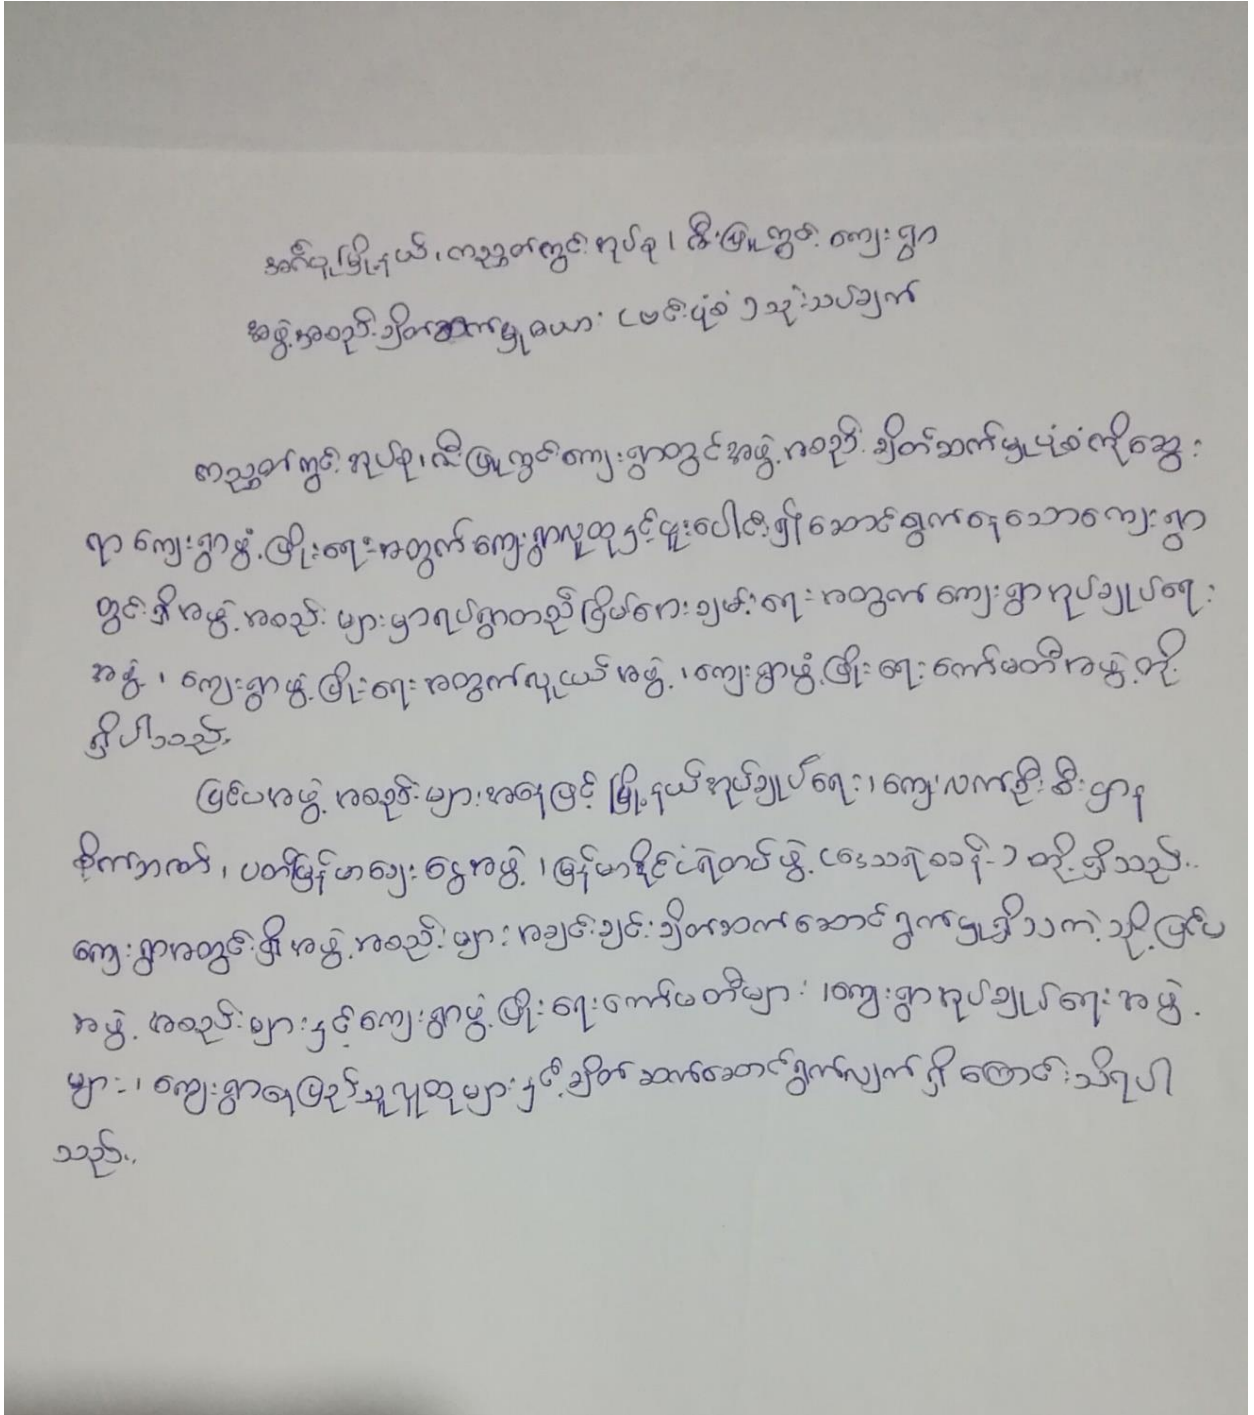 အင်္ဂပူမြို့နယ်၊ ကညွတ်ကွင်းအုပ်စု၊ ဇီးဖြူကွင်းကျေးရွာ
အဖွဲ့အစည်းချိတ်ဆက်မှုဇယား (ဗင်းပုံစံ) သုံးသပ်ချက်
ကညွတ်ကွင်းအုပ်စု၊ ဇီးဖြူကွင်းကျေးရွာတွင်အဖွဲ့အစည်းချိတ်ဆက်မှုပုံစံကိုဆွေး
ရာ ကျေးရွာဖွံ့ဖြိုးရေးအတွက်ကျေးရွာလူထုနှင့်ပူးပေါင်း၍ဆောင်ရွက်နေသောကျေးရွာ
တွင်းရှိအဖွဲ့အစည်းများမှာရပ်ရွာတည်ငြိမ်အေးချမ်းရေးအတွက်ကျေးရွာအုပ်ချုပ်ရေး
အဖွဲ့၊ ကျေးရွာဖွံ့ဖြိုးရေးအတွက်လူငယ်အဖွဲ့၊ ကျေးရွာဖွံ့ဖြိုးရေးကော်မတီအဖွဲ့တို့
ရှိပါသည်။
ပြင်ပအဖွဲ့အစည်းများအနေဖြင့် မြို့နယ်အုပ်ချုပ်ရေး၊ ကျေးလက်ဦးစီးဌာန
စိုက်ဘဏ်၊ ပတ်မြန်မာချေးငွေအဖွဲ့၊ မြန်မာနိုင်ငံရဲတပ်ဖွဲ့ (ဒေသရဲစခန်း) တို့ရှိသည်။
ကျေးရွာအတွင်းရှိအဖွဲ့အစည်းများအချင်းချင်းချိတ်ဆက်ဆောင်ရွက်မှုရှိသကဲ့သို့ပြင်ပ
အဖွဲ့အစည်းများနှင့်ကျေးရွာဖွံ့ဖြိုးရေးကော်မတီများ၊ ကျေးရွာအုပ်ချုပ်ရေးအဖွဲ့
များ၊ ကျေးရွာနေပြည်သူလူထုများနှင့်ချိတ်ဆက်ဆောင်ရွက်လျက်ရှိကြောင်းသိရပါ
သည်။